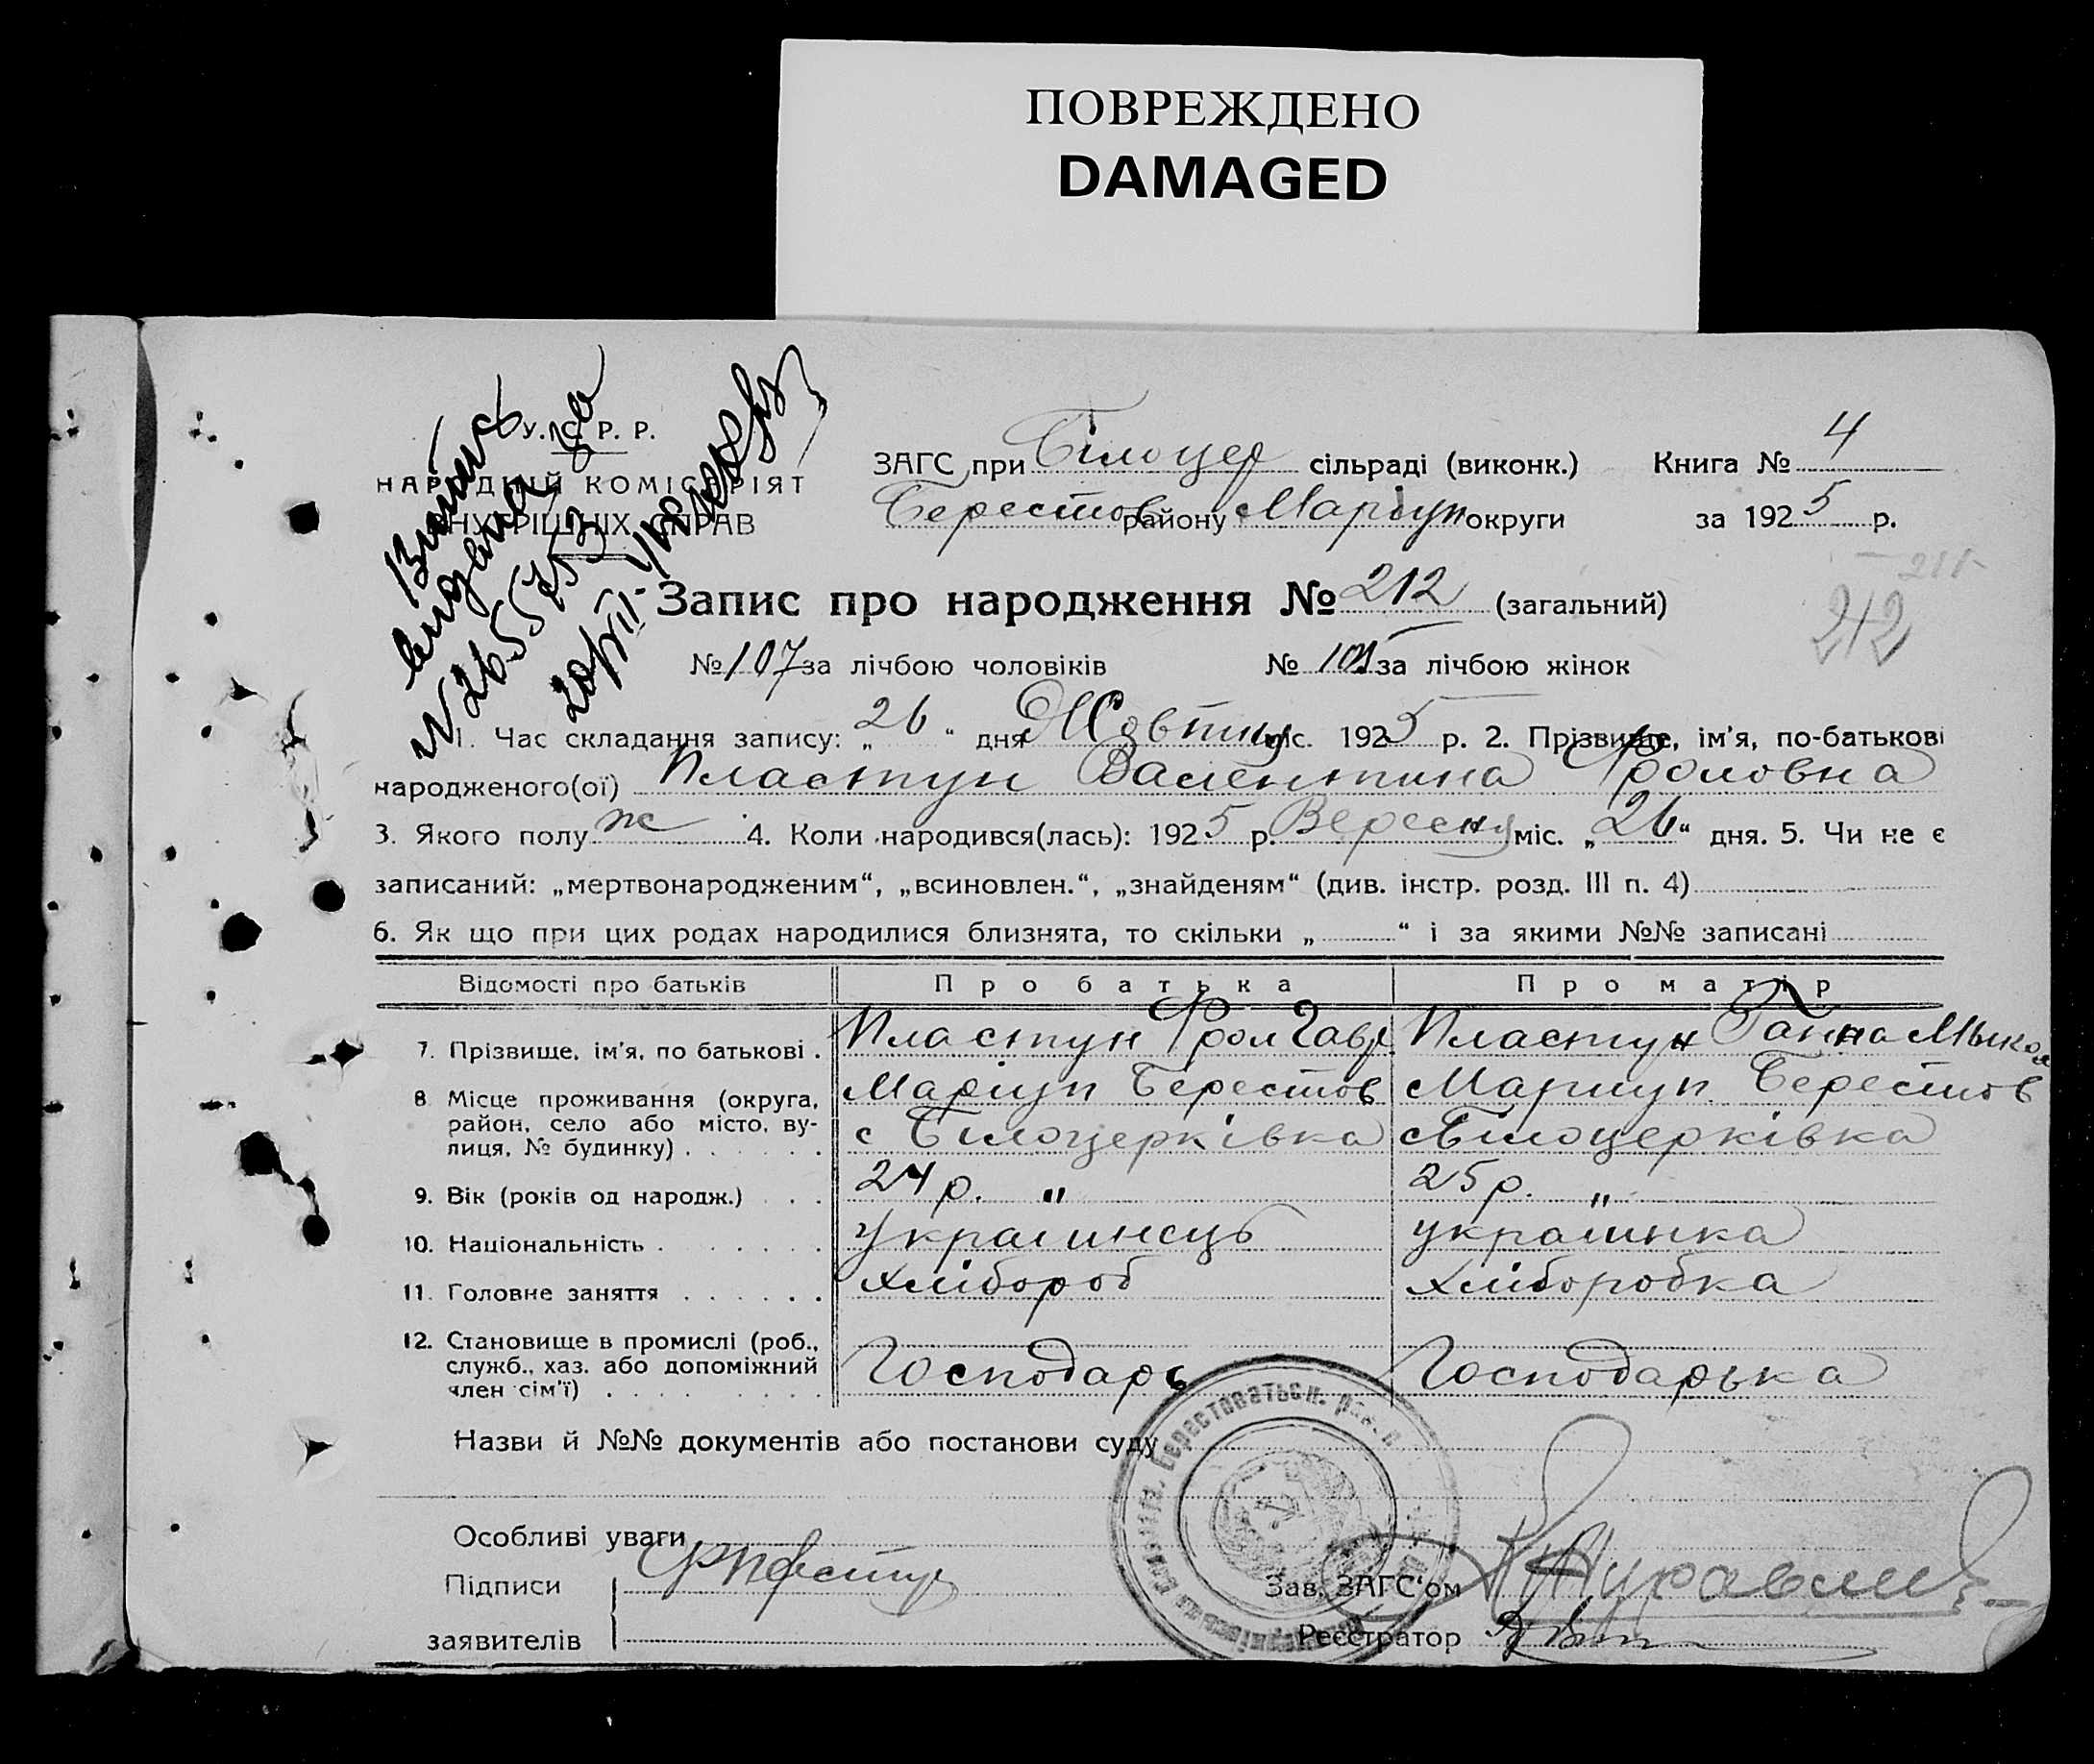 ПОВРЕЖДЕНО
DAMAGED
У. С. Р. Р.
НАРОДНИЙ КОМІСАРІЯТ
ВНУТРІШНІХ СПРАВ
видана
ЗАГС при Білоцер сільраді (виконк.) Книга № 4
Берестов району Маріуп округи за 1925 р.
Запис про народження № 212 (загальний)
212
№ 107 за лічбою чоловіків № 105 за лічбою жінок
1. Час складання запису: „26“ дня Жовтня міс. 1925 р. 2. Прізвище, ім'я, по-батькові
народженого(ої) Пластун Валентина Фроловна
3. Якого полу ж 4. Коли народився(лась): 1925 р. Вересня міс. „26“ дня. 5. Чи не є
записаний: „мертвонародженим“, „всиновлен.“, „знайденям“ (див. інстр. розд. III п. 4)
6. Як що при цих родах народилися близнята, то скільки „ “ і за якими №№ записані
Відомості про батьків Про батька Про матір
7. Прізвище, ім'я, по батькові . Пластун Фрол Гавр Пластун Ганна Мыкол
8 Місце проживання (округа, Маріуп Берестов Мариуп Берестов
район, село або місто, ву- с Білоцерківка с Білоцерківка
лиця, № будинку)
9. Вік (років од народж.) 24 р. " 25 р. "
10. Національність украинець украинка
11. Головне заняття хлібороб хліборобка
12. Становище в промислі (роб.,
служб., хаз. або допоміжний Господарь Господарька
член сім'ї)
Назви й №№ документів або постанови суду
Особливі уваги
Підписи
Зав. ЗАГС'ом
заявителів
Реєстратор